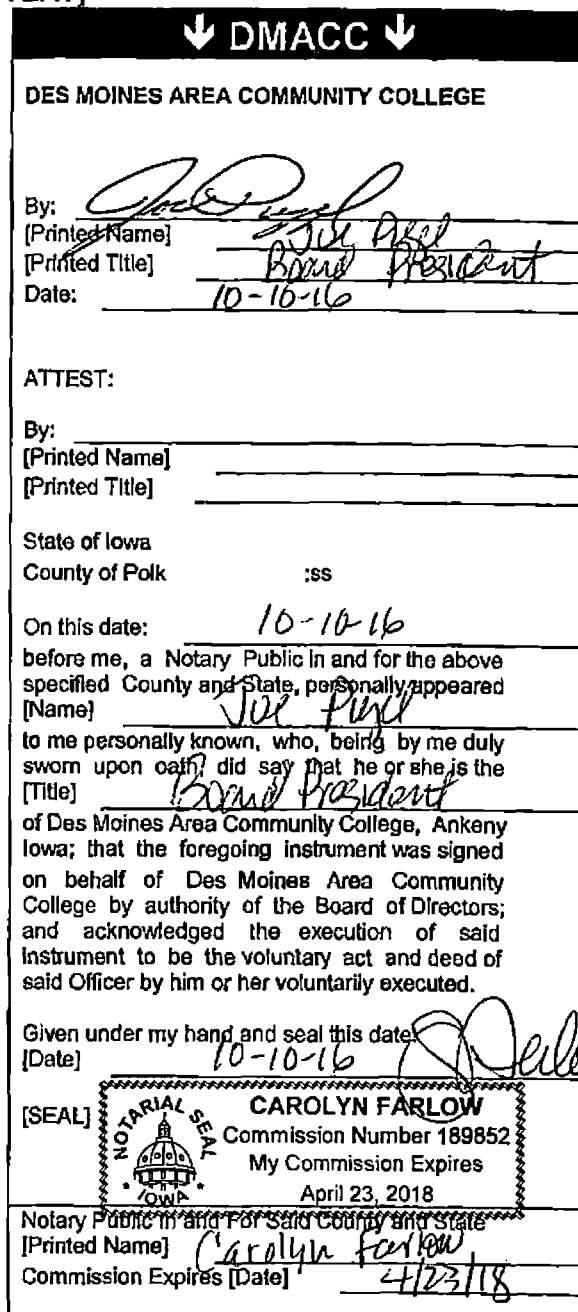 DMACC
DES MOINES AREA COMMUNITY COLLEGE
By:
[Printed Name] Joe Pugel
[Printed Title] Board President
Date: 10-10-16
ATTEST:
By:
[Printed Name]
[Printed Title]
State of Iowa
County of Polk :ss
On this date: 10-10-16
before me, a Notary Public in and for the above
specified County and State, personally appeared
[Name] Joe Pugel
to me personally known, who, being by me duly
sworn upon oath, did say that he or she is the
[Title] Board President
of Des Moines Area Community College, Ankeny
Iowa; that the foregoing instrument was signed
on behalf of Des Moines Area Community
College by authority of the Board of Directors;
and acknowledged the execution of said
instrument to be the voluntary act and deed of
said Officer by him or her voluntarily executed.
Given under my hand and seal this date:
[Date] 10-10-16
[SEAL] NOTARIAL SEAL IOWA
CAROLYN FARLOW
Commission Number 189852
My Commission Expires
April 23, 2018
Notary Public in and For Said County and State
[Printed Name] Carolyn Farlow
Commission Expires [Date] 4/23/18